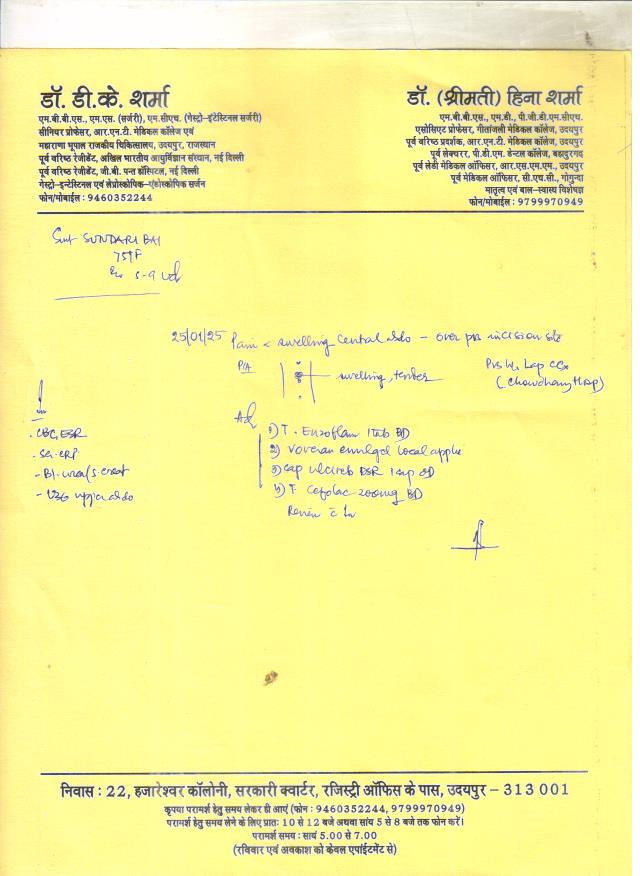 डॉ. डी.के. शर्मा
एम.बी.बी.एस., एम.एस. (सर्जरी), एम.सीएच. (गेस्ट्रो-इंटेस्टिनल सर्जरी)
सीनियर प्रोफेसर, आर.एन.टी. मेडिकल कॉलेज एवं
महाराणा भूपाल राजकीय चिकित्सालय, उदयपुर, राजस्थान
पूर्व वरिष्ठ रेजीडेंट, अखिल भारतीय आयुर्विज्ञान संस्थान, नई दिल्ली
पूर्व वरिष्ठ रेजीडेंट, जी.बी. पन्त हॉस्पिटल, नई दिल्ली
गेस्ट्रो-इन्टेस्टिनल एवं लेप्रोस्कोपिक-एंडोस्कोपिक सर्जन
फोन/मोबाईल : 9460352244
डॉ. (श्रीमती) हिना शर्मा
एम.बी.बी.एस., एम.डी., पी.जी.डी.एम.सीएच.
एसोसिएट प्रोफेसर, गीतांजली मेडिकल कॉलेज, उदयपुर
पूर्व वरिष्ठ प्रदर्शक, आर.एन.टी. मेडिकल कॉलेज, उदयपुर
पूर्व लेक्चरर, पी.डी.एम. डेन्टल कॉलेज, बहादुरगढ़
पूर्व लेडी मेडिकल ऑफिसर, आर.एस.एम.एम., उदयपुर
पूर्व मेडिकल ऑफिसर, सी.एच.सी., गोगुन्दा
मातृत्व एवं बाल-स्वास्थ्य विशेषज्ञ
फोन/मोबाईल : 9799970949
Smt SUNDARI BAI
75/F
25/01/25 Pain & swelling central abdo - over prv incision site
P/A swelling, tender
Lap CCx
(Chowdhary Hosp)
- CBC, ESR
- Se. CRP
- Bl. urea/S. creat
- USG upper abdo
Ad
1) T. Enzoflam 1 tab BD
2) Voveran emulgel local applic
3) Cap DSR 1 cap OD
4) T. Cefolac 200mg BD
Review c
निवास : 22, हजारेश्वर कॉलोनी, सरकारी क्वार्टर, रजिस्ट्री ऑफिस के पास, उदयपुर – 313 001
कृपया परामर्श हेतु समय लेकर ही आएं (फोन : 9460352244, 9799970949)
परामर्श हेतु समय लेने के लिए प्रातः 10 से 12 बजे अथवा सांय 5 से 8 बजे तक फोन करें।
परामर्श समय : सायं 5.00 से 7.00
(रविवार एवं अवकाश को केवल एपांईटमेंट से)